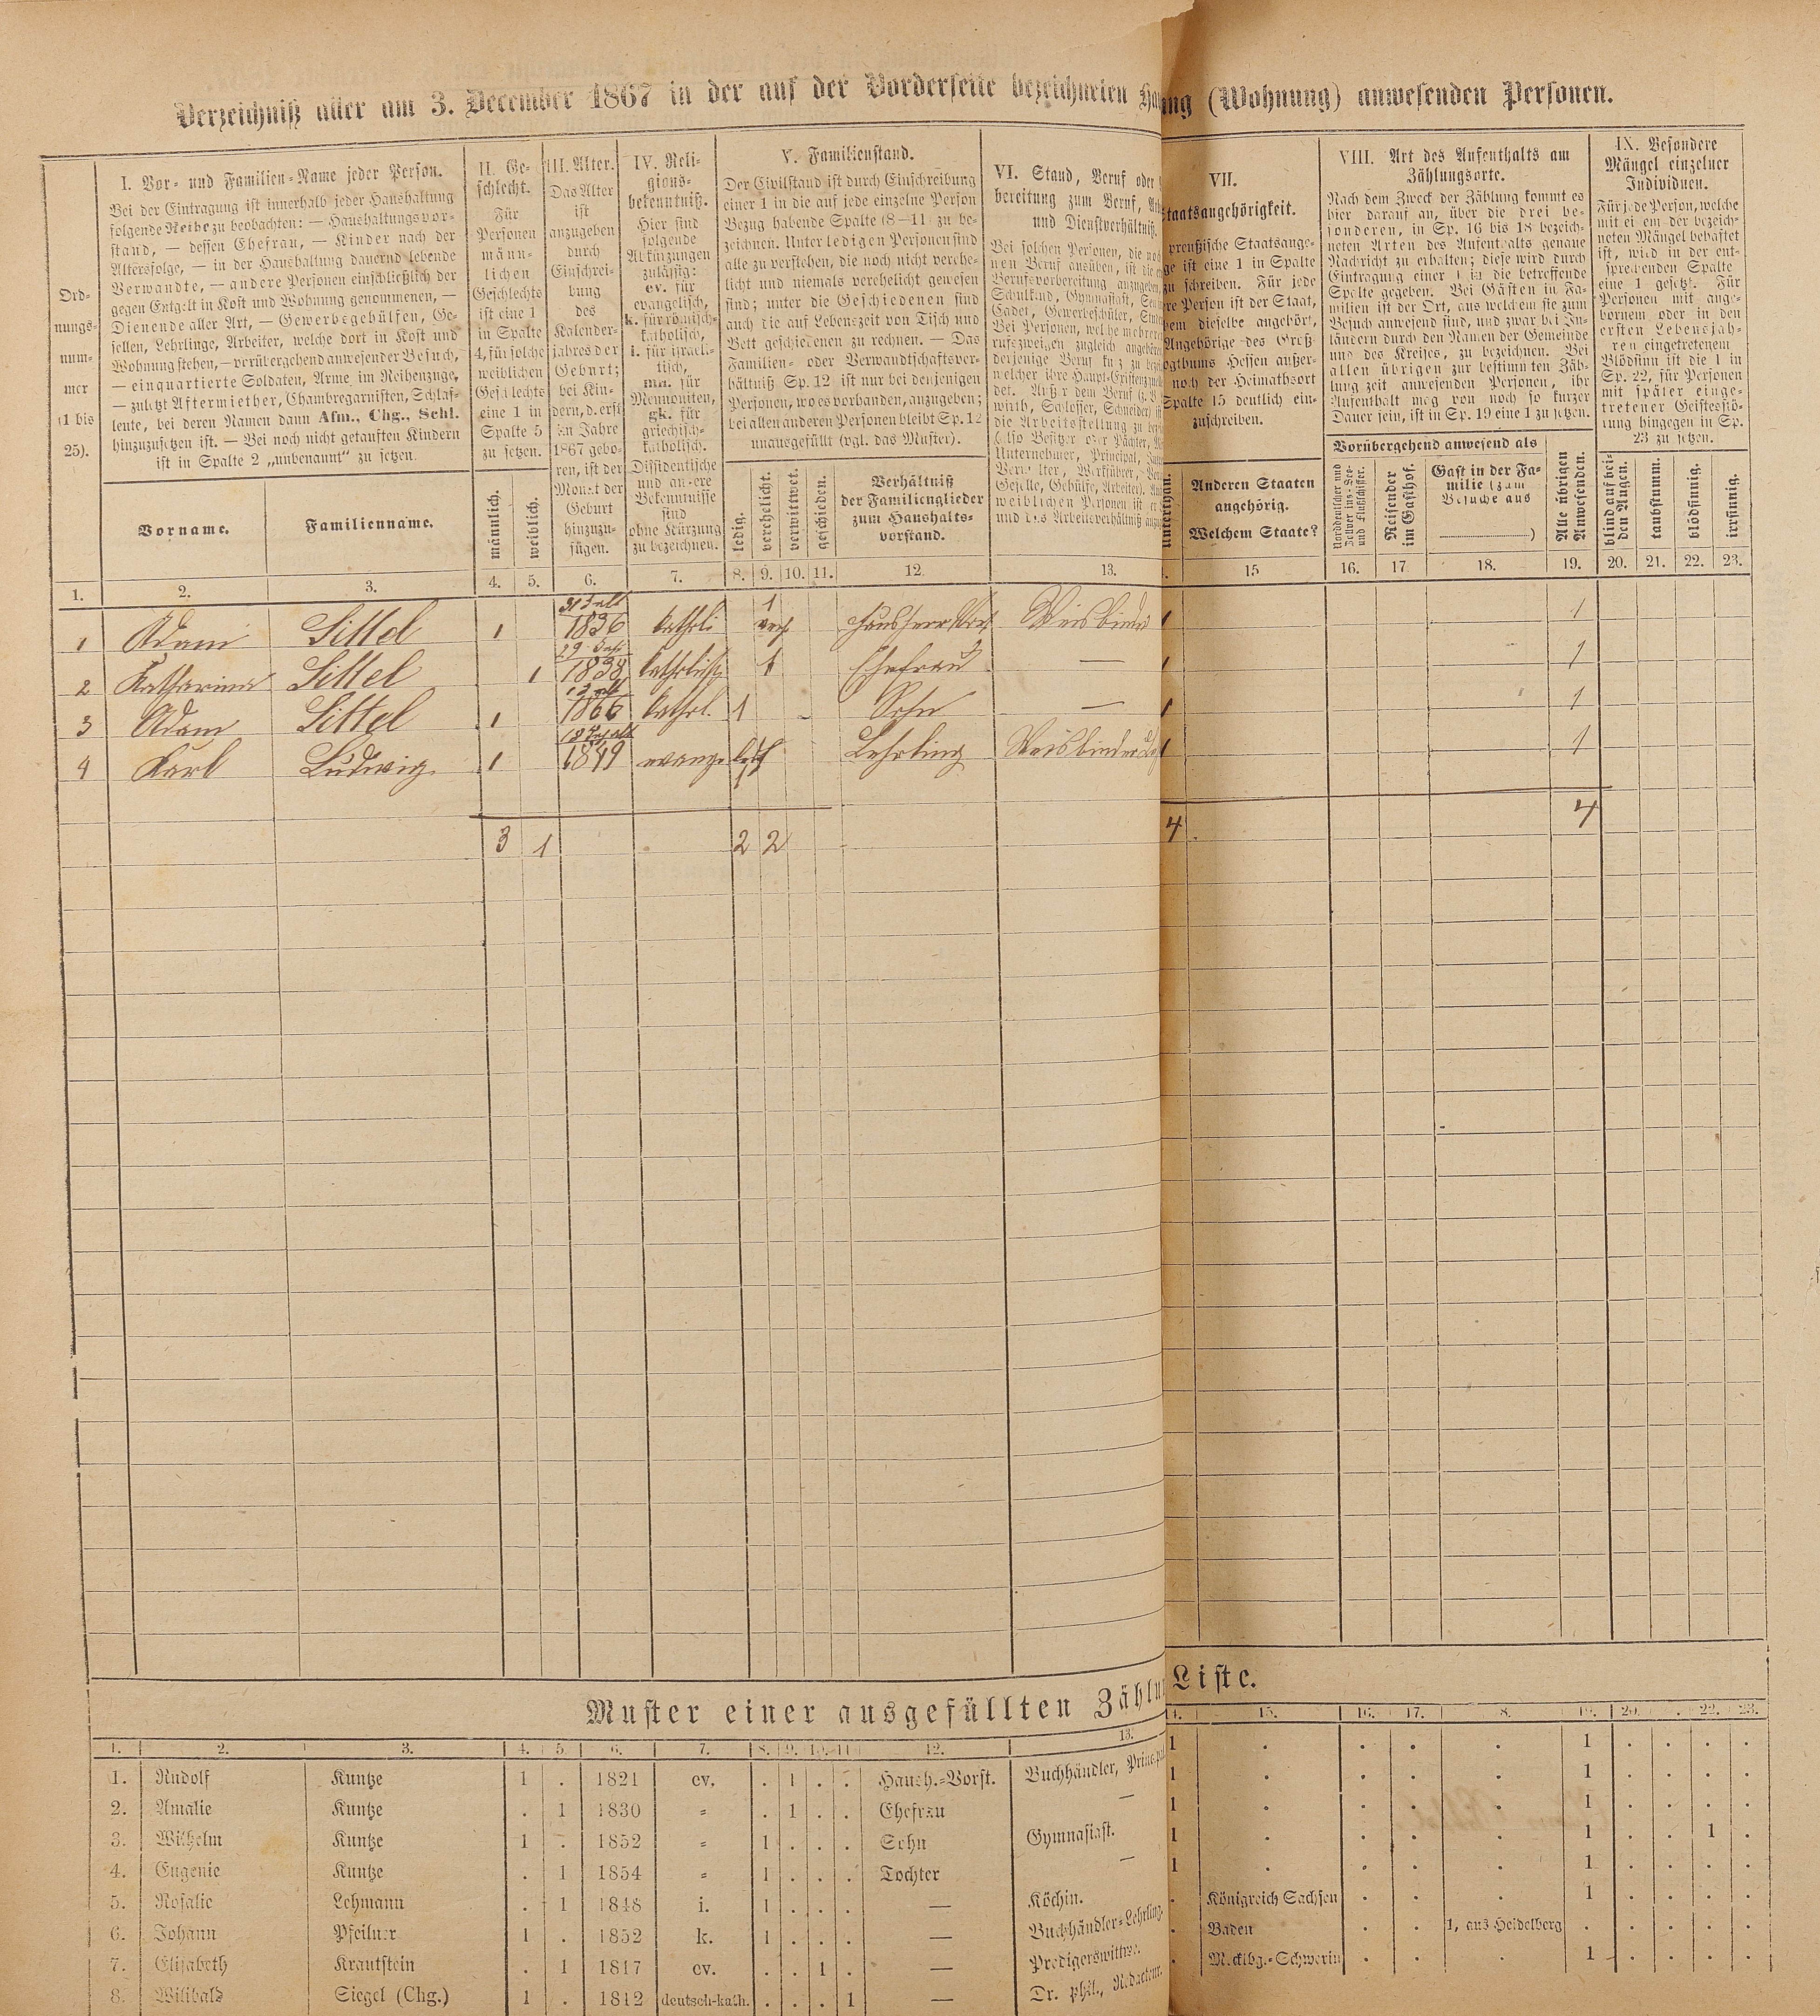 Verzeichniß aller am 3. December 1867 in der auf der Vorderseite bezeichneten Hau ng (Wohnung) anwesenden Personen.
Ord-
nungs-
num-
mer
(1 bis
25).
I. Vor- und Familien-Name jeder Person.
Bei der Eintragung ist innerhalb jeder Haushaltung
folgende Reihe zu beobachten: — Haushaltungsvor-
stand, — dessen Ehefrau, — Kinder nach der
Altersfolge, — in der Haushaltung dauernd lebende
Verwandte, — andere Personen einschließlich der
gegen Entgelt in Kost und Wohnung genommenen, —
Dienende aller Art, — Gewerbsgehülfen, Ge-
sellen, Lehrlinge, Arbeiter, welche dort in Kost und
Wohnung stehen, — vorübergehend anwesender Besuch,
— einquartierte Soldaten, Arme im Reihenzuge,
— zuletzt Aftermiether, Chambregarnisten, Schlaf-
leute, bei deren Namen dann Afm., Chg., Schl.
hinzuzusetzen ist. — Bei noch nicht getauften Kindern
ist in Spalte 2 „unbenannt“ zu setzen.
Vorname.
Familienname.
II. Ge-
schlecht.
Für
Personen
männ-
lichen
Geschlechts
ist eine 1
in Spalte
4, für solche
weiblichen
Geschlechts
eine 1 in
Spalte 5
zu setzen.
männlich.
weiblich.
III. Alter.
Das Alter
ist
anzugeben
durch
Einschrei-
bung
des
Kalender-
jahres der
Geburt;
bei Kin-
dern, d. erst
im Jahre
1867 gebo-
ren, ist der
Monat der
Geburt
hinzuzu-
fügen.
IV. Reli-
gions-
bekenntniß.
Hier sind
folgende
Abkürzungen
zulässig:
ev. für
evangelisch,
k. für römisch-
katholisch,
i. für israeli-
tisch,
mn. für
Mennoniten,
gk. für
griechisch-
katholisch.
Dissidentische
und andere
Bekenntnisse
sind
ohne Kürzung
zu bezeichnen.
V. Familienstand.
Der Civilstand ist durch Einschreibung
einer 1 in die auf jede einzelne Person
Bezug habende Spalte (8—11) zu be-
zeichnen. Unter ledigen Personen sind
alle zu verstehen, die noch nicht verehe-
licht und niemals verehelicht gewesen
sind; unter die Geschiedenen sind
auch die auf Lebenszeit von Tisch und
Bett geschiedenen zu rechnen. — Das
Familien- oder Verwandtschaftsver-
hältniß Sp. 12 ist nur bei denjenigen
Personen, wo es vorhanden, anzugeben;
bei allen anderen Personen bleibt Sp. 12
unausgefüllt (vgl. das Muster).
ledig.
verehelicht.
verwittwet.
geschieden.
Verhältniß
der Familienglieder
zum Haushalts-
vorstand.
VI. Stand, Beruf oder
bereitung zum Beruf,
und Dienstverhältniß.
Bei solchen Personen, die noch
nen Beruf ausüben, ist die
Berufsvorbereitung anzugeben,
Schulkind, Gymnasiast,
Cadet, Gewerbeschüler,
Bei Personen, welche mehreren
rufszweigen zugleich angehören
derjenige Beruf
welcher ihre Haupt-Existenzquelle
det. Außer dem Beruf
wirth, Schlosser, Schneider) ist
die Arbeitsstellung zu
(also Besitzer oder Pächter,
Unternehmer, Principal,
Verwalter, Werkführer,
Geselle, Gehülfe, Arbeiter).
weiblichen Personen ist
und das Arbeitsverhältniß
VII.
Staatsangehörigkeit.
preußische Staatsange-
ge ist eine 1 in Spalte
zu schreiben. Für jede
re Person ist der Staat,
dem dieselbe angehört,
Angehörige des Groß-
ogthums Hessen außer-
noch der Heimathsort
Spalte 15 deutlich ein-
zuschreiben.
unterthan.
Anderen Staaten
angehörig.
Welchem Staate?
VIII. Art des Aufenthalts am
Zählungsorte.
Nach dem Zweck der Zählung kommt es
hier darauf an, über die drei be-
sonderen, in Sp. 16 bis 18 bezeich-
neten Arten des Aufenthalts genaue
Nachricht zu erhalten; diese wird durch
Eintragung einer 1 in die betreffende
Spalte gegeben. Bei Gästen in Fa-
milien ist der Ort, aus welchem sie zum
Besuch anwesend sind, und zwar bei In-
ländern durch den Namen der Gemeinde
und des Kreises, zu bezeichnen. Bei
allen übrigen zur bestimmten Zäh-
lungszeit anwesenden Personen, ihr
Aufenthalt mag von noch so kurzer
Dauer sein, ist in Sp. 19 eine 1 zu setzen.
Vorübergehend anwesend als
Norddeutscher und
Zollvereins-See-
und Flußschiffer.
Reisender
im Gasthof.
Gast in der Fa-
milie (zum
Besuche aus
)
Alle übrigen
Anwesenden.
IX. Besondere
Mängel einzelner
Individuen.
Für jede Person, welche
mit einem der bezeich-
neten Mängel behaftet
ist, wird in der ent-
sprechenden Spalte
eine 1 gesetzt. Für
Personen mit ange-
bornem oder in den
ersten Lebensjah-
ren eingetretenem
Blödsinn ist die 1 in
Sp. 22, für Personen
mit später einge-
tretener Geistesstö-
rung hingegen in Sp.
23 zu setzen.
blind auf bei-
den Augen.
taubstumm.
blödsinnig.
irrsinnig.
1. 2. 3. 4. 5. 6. 7. 8. 9. 10. 11. 12 13. 15 16. 17 18. 19. 20. 21. 22. 23.
31 J alt 1
1 Adam Sittel 1 1836 katholi Weisbinder 1 1
29
2 Katharina Sittel 1 1838 katholisch 1 Ehefrau — 1 1
3 Adam Sittel 1 1866 kathol. 1 Sohn — 1 1
4 Karl Ludwig 1 1849 Lehrling Weisbinder 1 1
3 1 2 2 4 4
Muster einer ausgefüllten Zählu Liste.
1. 2. 3. 4. 5 6. 7. 8. 9. 10. 11 12. 13. 4. 15. 16. 17. 8. 19. 20. . 22. 23.
1. Rudolf Kuntze 1 . 1821 ev. . 1 . . Haush.-Vorst. Buchhändler, Principal 1 . . . . 1 . . . .
2. Amalie Kuntze . 1 1830 = . 1 . . Ehefrau — 1 . . . . 1 . . . .
3. Wilhelm Kuntze 1 . 1852 = 1 . . . Sohn Gymnasiast. 1 . . . . 1 . . . .
4. Eugenie Kuntze . 1 1854 = 1 . . . Tochter — 1 . . . . 1 . . 1 .
5. Rosalie Lehmann . 1 1848 i. 1 . . . — Köchin. 1 . . . . 1 . . . .
6. Johann Pfeilner 1 . 1852 k. 1 . . . — Buchhändler-Lehrling. . Königreich Sachsen . . . 1 . . . .
7. Elisabeth Krautstein . 1 1817 ev. . . 1 . — Predigerswittwe. . Baden . . 1, aus Heidelberg . . . . .
8. Wilibald Siegel (Chg.) 1 . 1812 deutsch-kath. . . . 1 — Dr. phil., Redacteur. . Mecklbg.-Schwerin . . . 1 . . . .